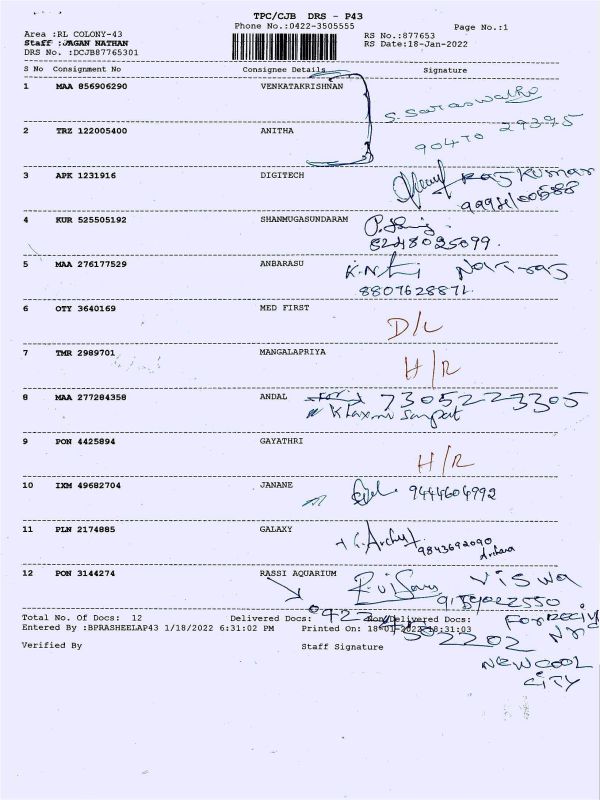 TPC/CJB DRS - P43
Phone No.:0422-3505555
Page No.:1
Area :RL COLONY-43
RS No.:877653
Staff :JAGAN NATHAN
RS Date:18-Jan-2022
DRS No. :DCJB87765301
S No Consignment No Consignee Details Signature
1 MAA 856906290 VENKATAKRISHNAN
S. Saraswathy
2 TRZ 122005400 ANITHA
90470 29395
3 APK 1231916 DIGITECH
Rajkumar
4 KUR 525505192 SHANMUGASUNDARAM
8248025099.
5 MAA 276177529 ANBARASU
Natraj
8807628871.
6 OTY 3640169 MED FIRST
D/L
7 TMR 2989701 MANGALAPRIYA
H/R
8 MAA 277284358 ANDAL
73052 23305
K Laxmi Sampat
9 PON 4425894 GAYATHRI
H/R
10 IXM 49682704 JANANE
9444604992
11 PLN 2174885 GALAXY
9843692090
Archana
12 PON 3144274 RASSI AQUARIUM
Viswa
Total No. Of Docs: 12 Delivered Docs: Non/Delivered Docs:
Entered By :BPRASHEELAP43 1/18/2022 6:31:02 PM Printed On: 18-01-2022 18:31:03
Verified By Staff Signature
NEW COOL
CITY